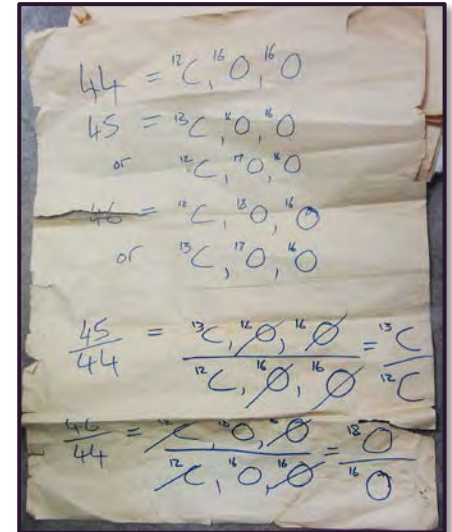 44 = ¹²C, ¹⁶O, ¹⁶O
45 = ¹³C, ¹⁶O, ¹⁶O
or ¹²C, ¹⁷O, ¹⁶O
46 = ¹²C, ¹⁸O, ¹⁶O
or ¹³C, ¹⁷O, ¹⁶O
45/44 = ¹³C, ¹⁶O, ¹⁶O / ¹²C, ¹⁶O, ¹⁶O = ¹³C / ¹²C
46/44 = ¹²C, ¹⁸O, ¹⁶O / ¹²C, ¹⁶O, ¹⁶O = ¹⁸O / ¹⁶O